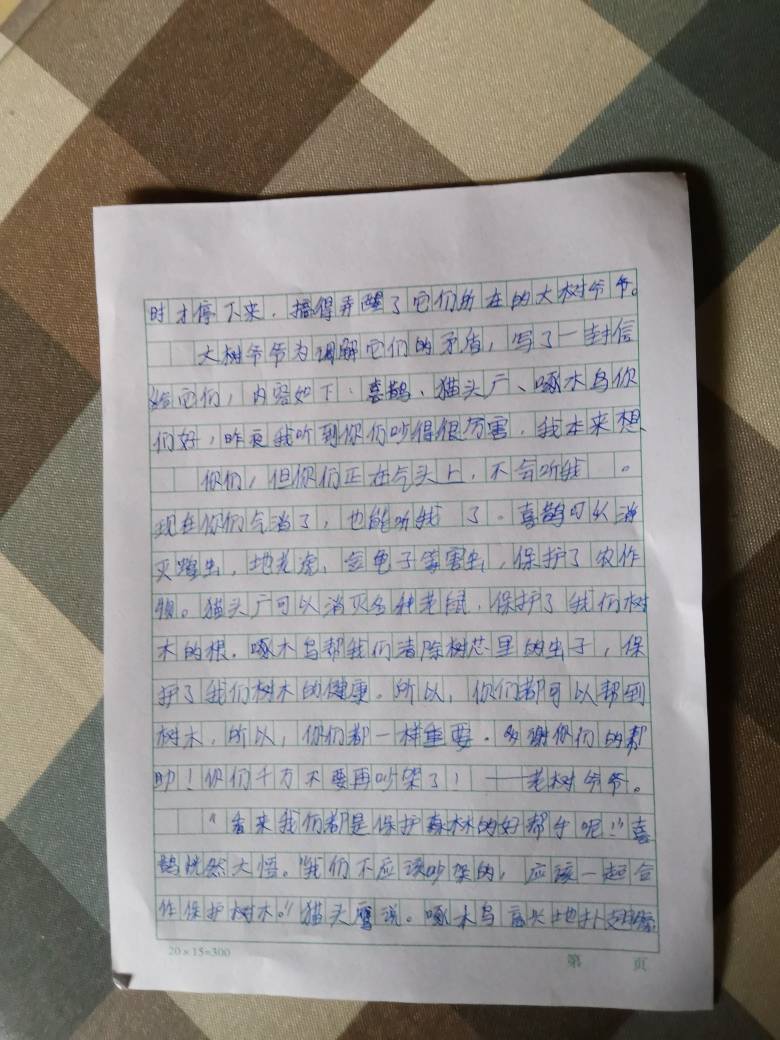 时才停下来，搞得弄醒了它们所在的大树爷爷。
大树爷爷为调解它们的矛盾，写了一封信
给它们，内容如下：喜鹊、猫头广、啄木鸟你
们好，昨夜我听到你们吵得很厉害，我本来想
你们，但你们正在气头上，不会听我。
现在你们气消了，也能听我了。喜鹊可以消
灭蝗虫，地老虎，金龟子等害虫，保护了农作
物。猫头广可以消灭各种老鼠，保护了我们树
木的根，啄木鸟帮我们清除树芯里的虫子，保
护了我们树木的健康。所以，你们都可以帮到
树木，所以，你们都一样重要。多谢你们的帮
助！你们千万不要再吵架了！——老树爷爷。
“看来我们都是保护森林的好帮手呢！”喜
鹊恍然大悟。“我们不应该吵架的，应该一起合
作保护树木。”猫头鹰说。啄木鸟高兴地扑
20×15=300
第 页